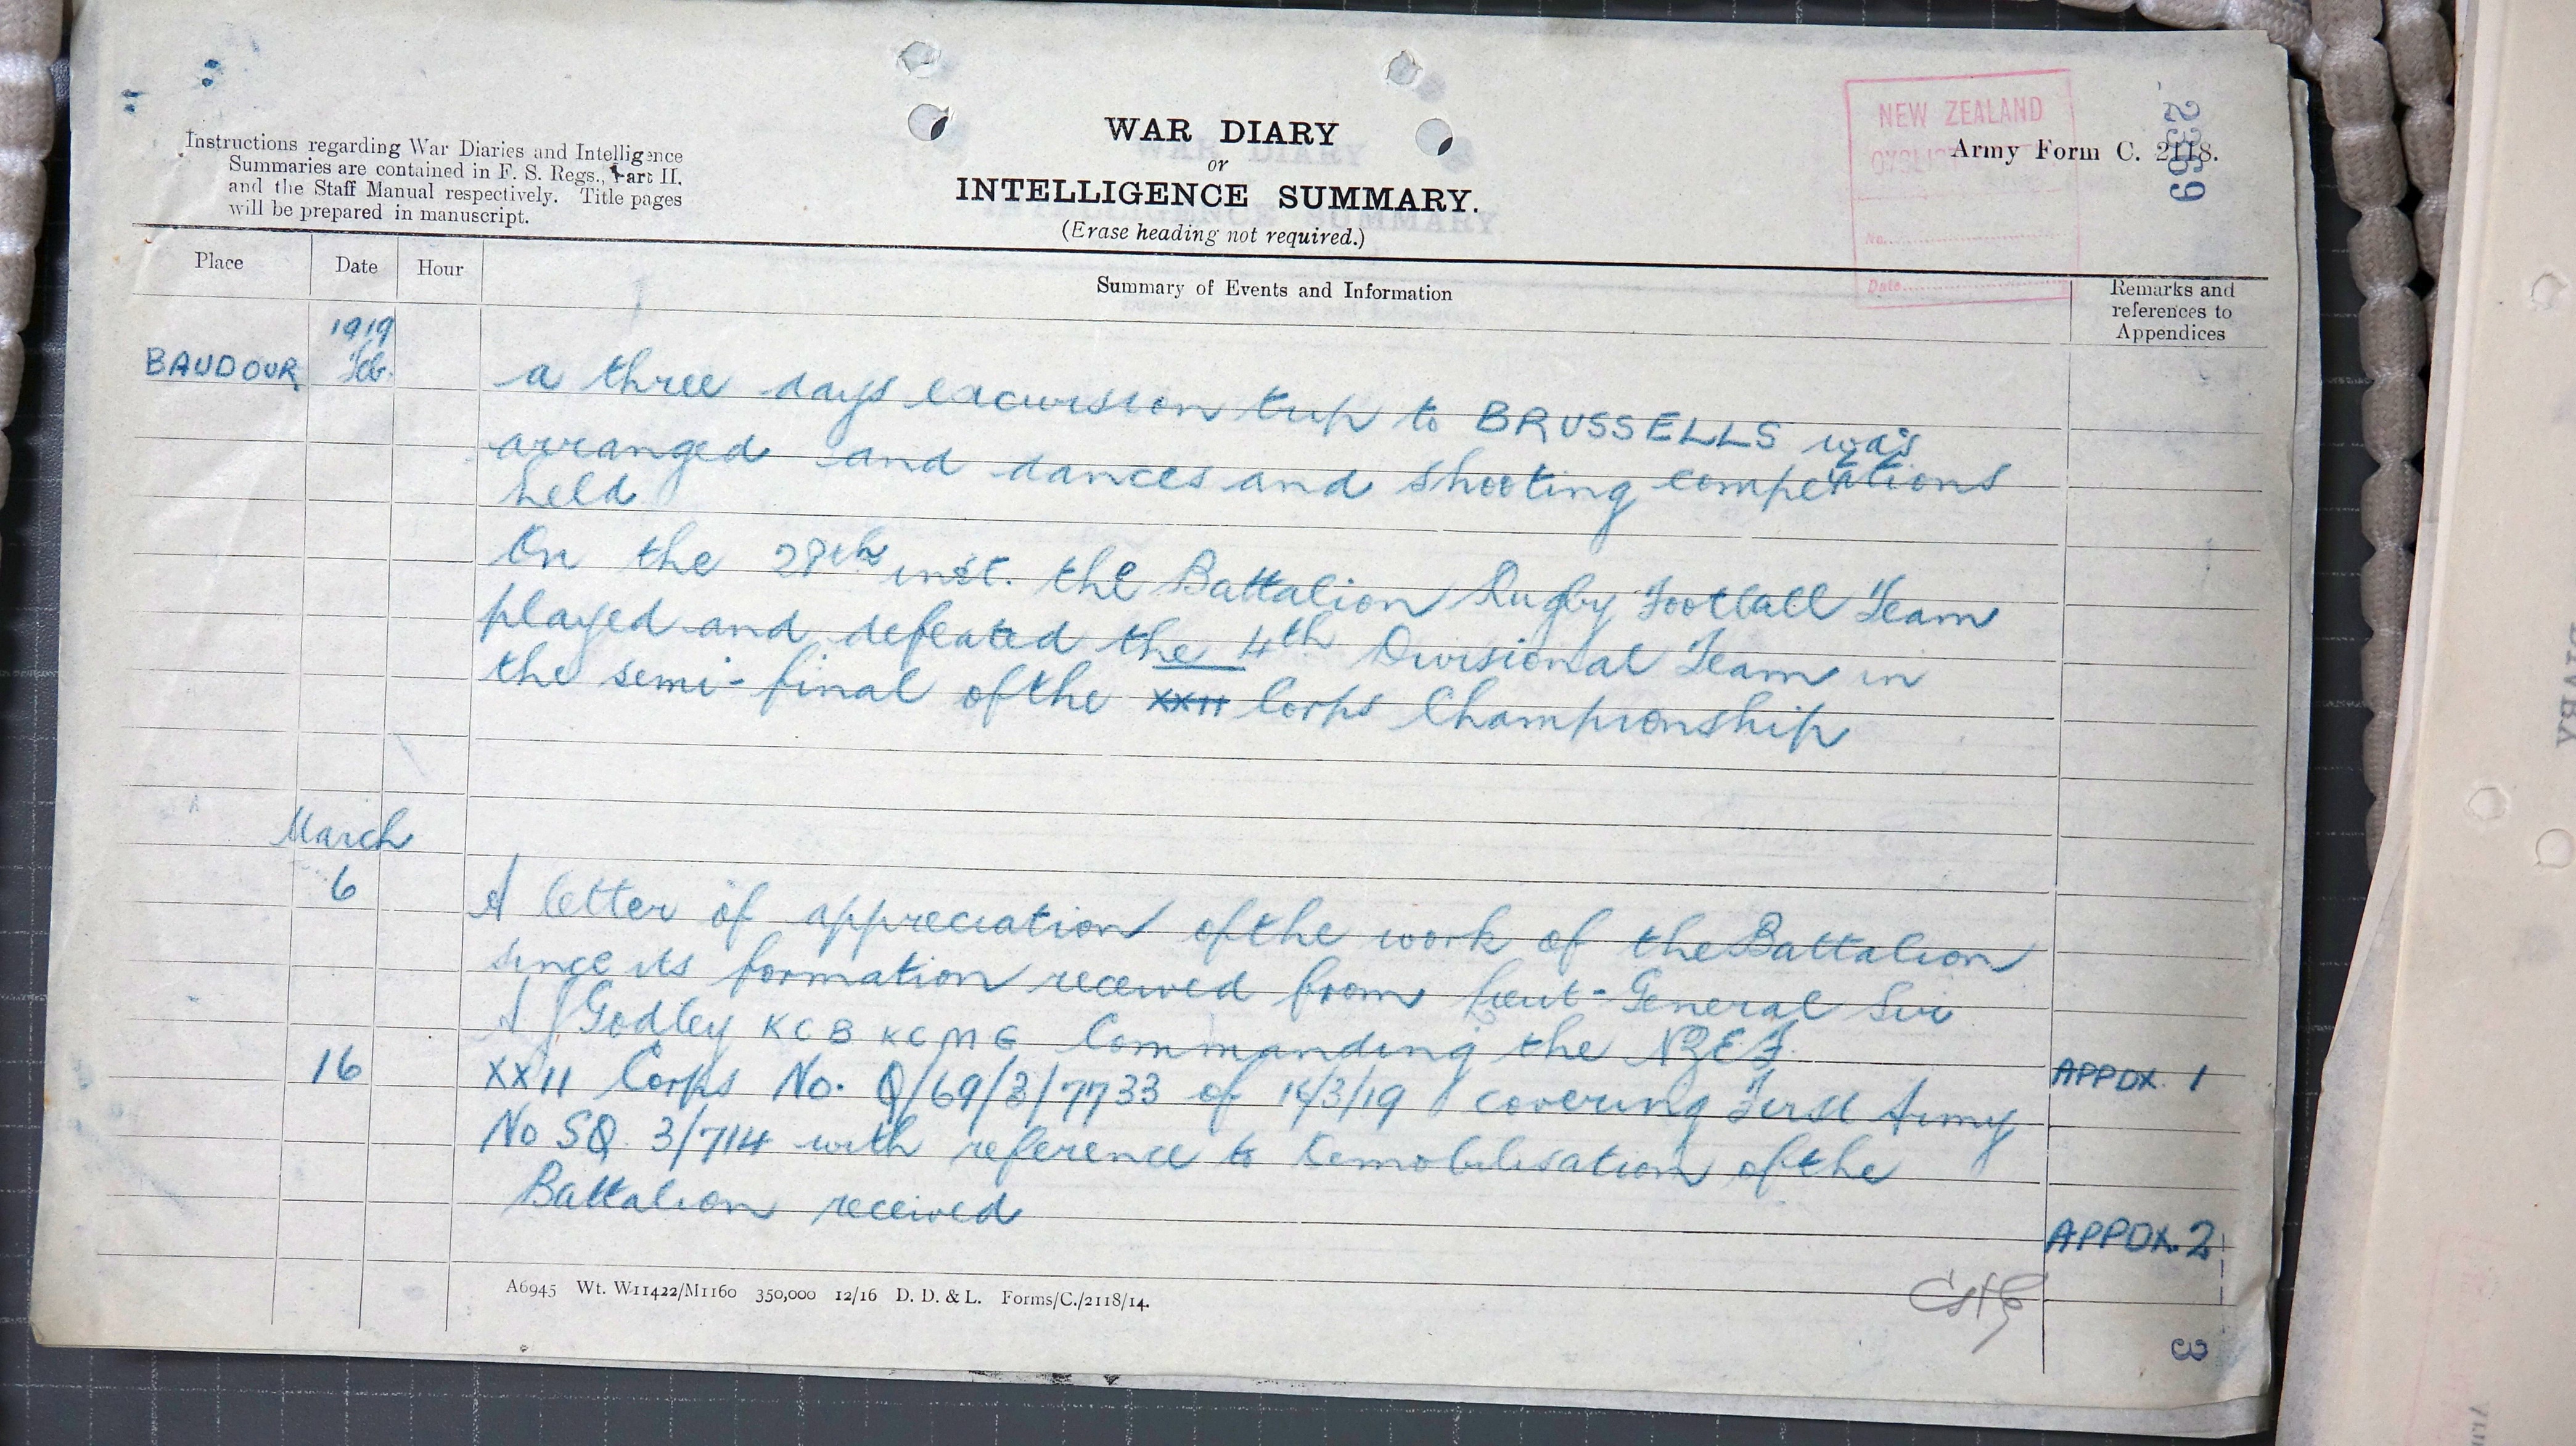 Instructions regarding War Diaries and Intelligence
Summaries are contained in F. S. Regs., Part II.
and the Staff Manual respectively. Title pages
will be prepared in manuscript.
WAR DIARY
or
INTELLIGENCE SUMMARY.
(Erase heading not required.)
NEW ZEALAND
No.
Date
Army Form C. 2118.
2369
Place
Date
Hour
Summary of Events and Information
Remarks and
references to
Appendices
1919
BAUDOUR Feb. a three days excursion trip to BRUSSELLS was
arranged and dances and shooting competitions
held
On the 28th inst. the Battalion Rugby Football Team
played and defeated the 4th Divisional Team in
the semi-final of the XXII Corps Championship
March
6 A letter of appreciation of the work of the Battalion
since its formation received from Lieut-General Sir
A J Godley KCB KCMG Commanding the NZEF. APPDX. 1
16 XXII Corps No. Q/69/3/7733 of 14/3/19 covering First Army
No SQ. 3/714 with reference to Demobilisation of the
Battalion received APPDX. 2
A6945 Wt. W11422/M1160 350,000 12/16 D. D. & L. Forms/C./2118/14.
3